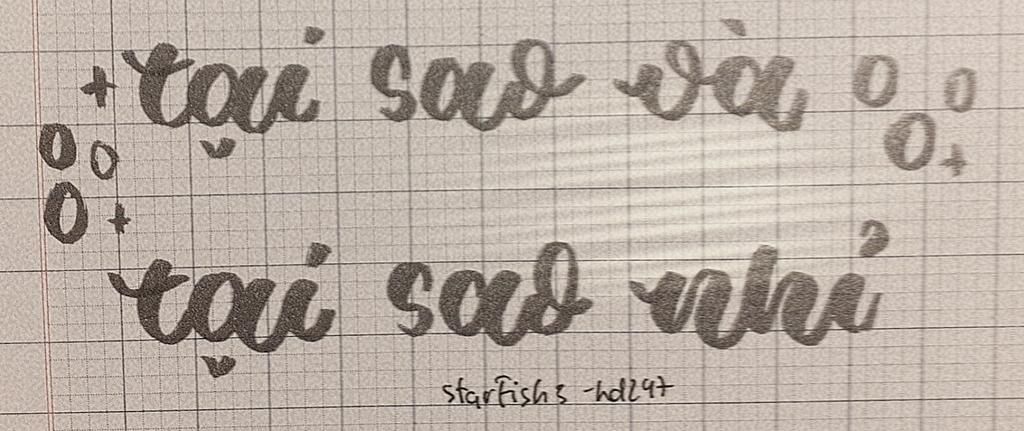 tại sao và
tại sao nhỉ
starfish3 -hd297